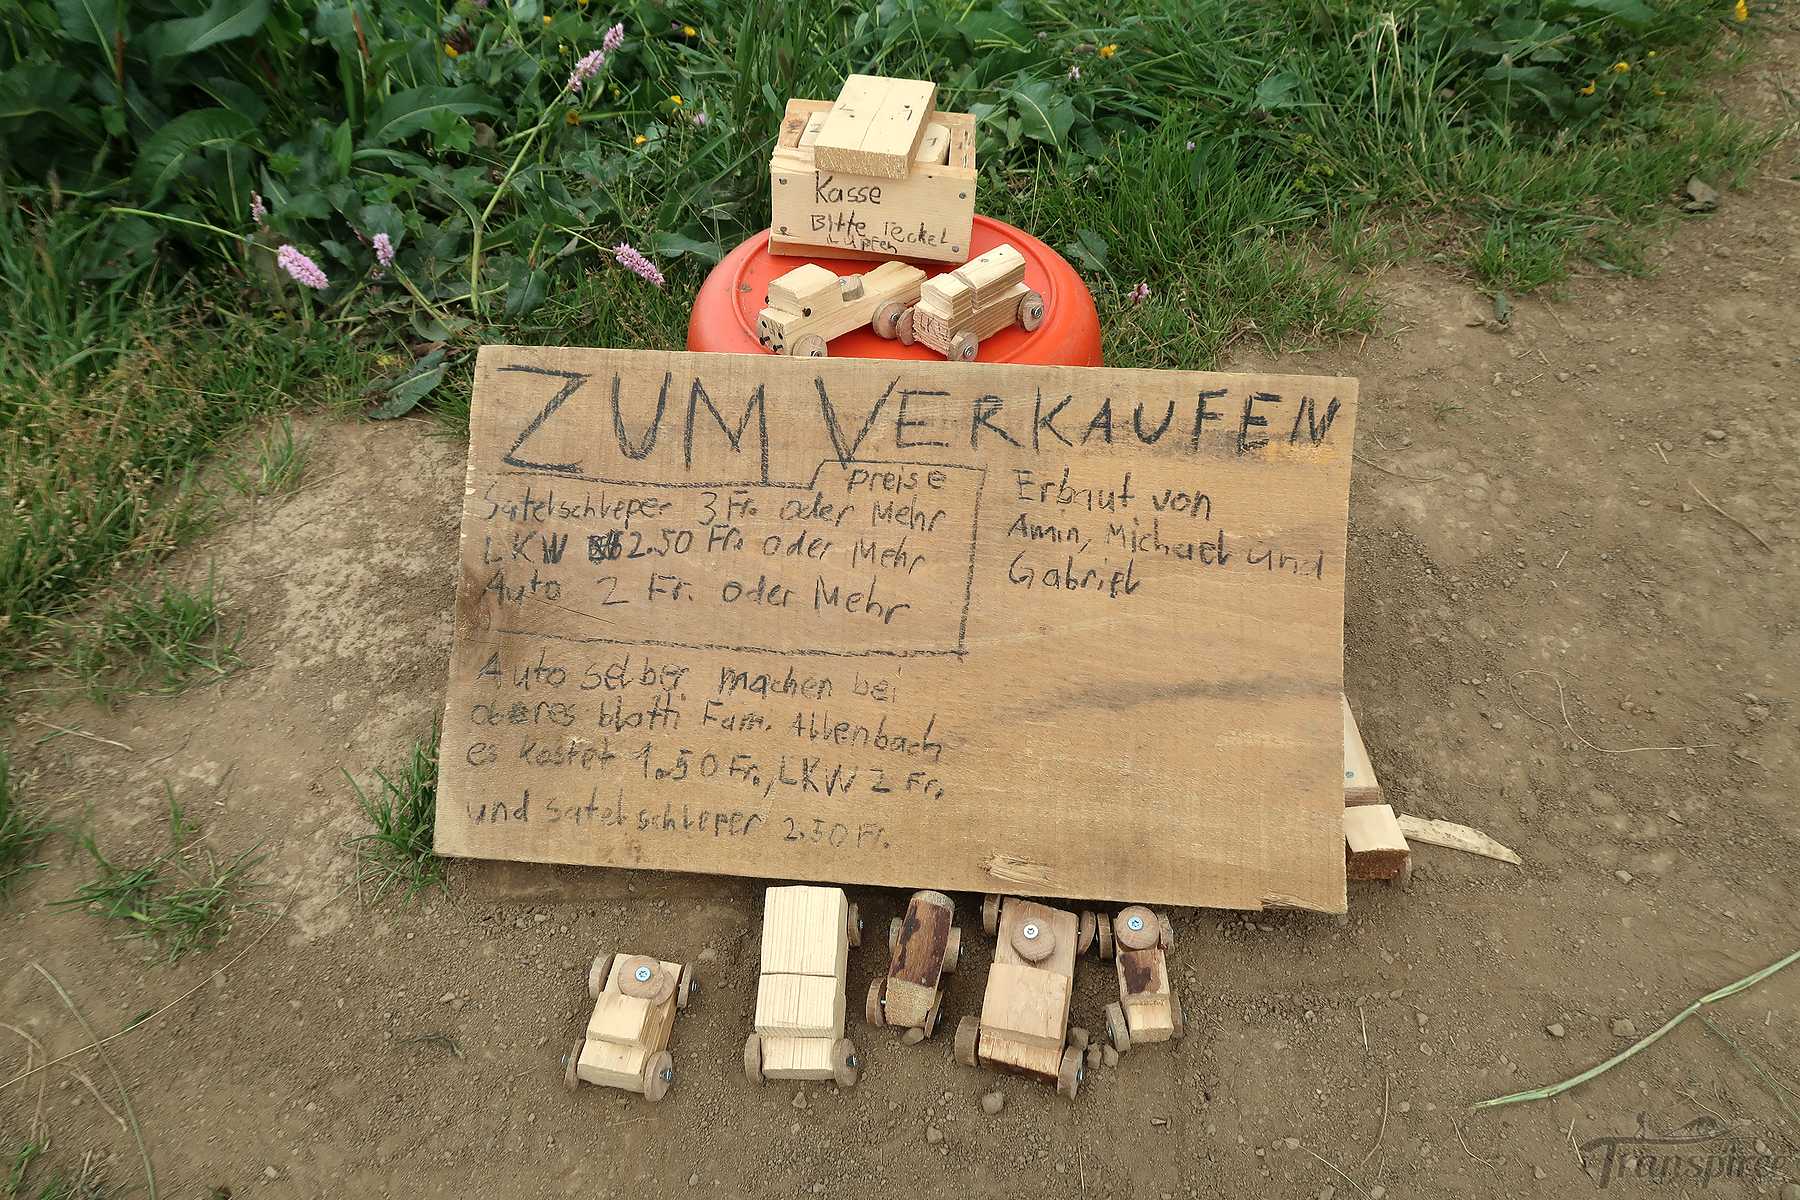 Kasse
Bitte Teckel
Lupfen
ZUM VERKAUFEN
preise
Satelschleper 3 Fr. oder Mehr
LKW 2.50 Fr. oder Mehr
Auto 2 Fr. oder Mehr
Erbaut von
Amin, Michael und
Gabriel
Auto selber machen bei
oberes blatti Fam. Allenbach
es kostet 1.50 Fr., LKW 2 Fr.
und satelschleper 2.50 Fr.
Transpiree